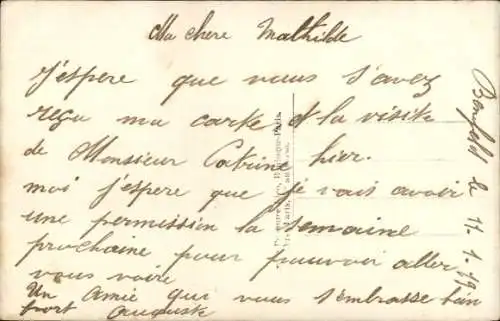 Ma chere Mathilde
j'espere que vous l'avez
reçu ma carte et la visite
de Monsieur hier.
moi j'espere que je vais avoir
une permission la semaine
prochaine pour pouvoir aller
vous voire
Un Amie que vous s'embrasse bien
fort Auguste
le 11.1.19